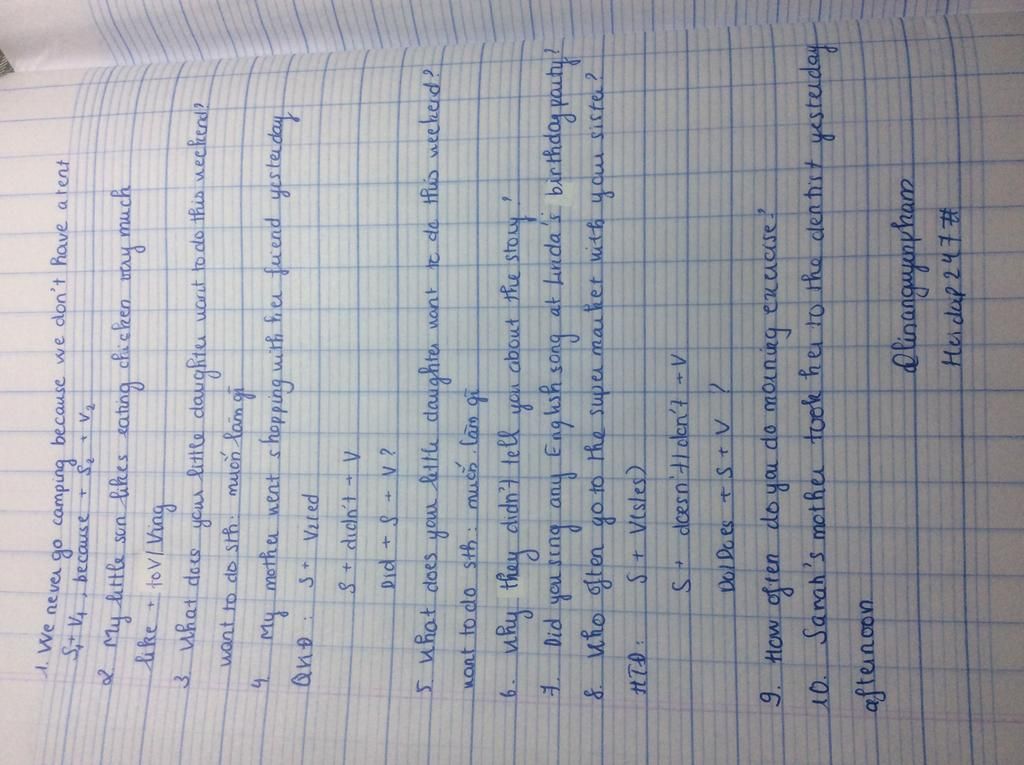 1. We never go camping because we don't have a tent
S₁ + V₁, because + S₂ + V₂
2. My little son likes eating chicken way much
like + to V / Ving
3 What does your little daughter want to do this weekend?
want to do sth: muốn làm gì
4 My mother went shopping with her friend yesterday
QKĐ : S + V2/ed
S + didn't + V
Did + S + V?
5. What does your little daughter want to do this weekend?
want to do sth: muốn làm gì
6. Why they didn't tell you about the story?
7. Did you sing any English song at Linda's birthday party?
8. Who often go to the super market with your sister?
HTĐ: S + V(s/es)
S + doesn't / don't + V
Do/Does + S + V ?
9. How often do you do morning exercise?
10. Sarah's mother took her to the dentist yesterday
afternoon
Qlinanguynpham
Hoidap247 #